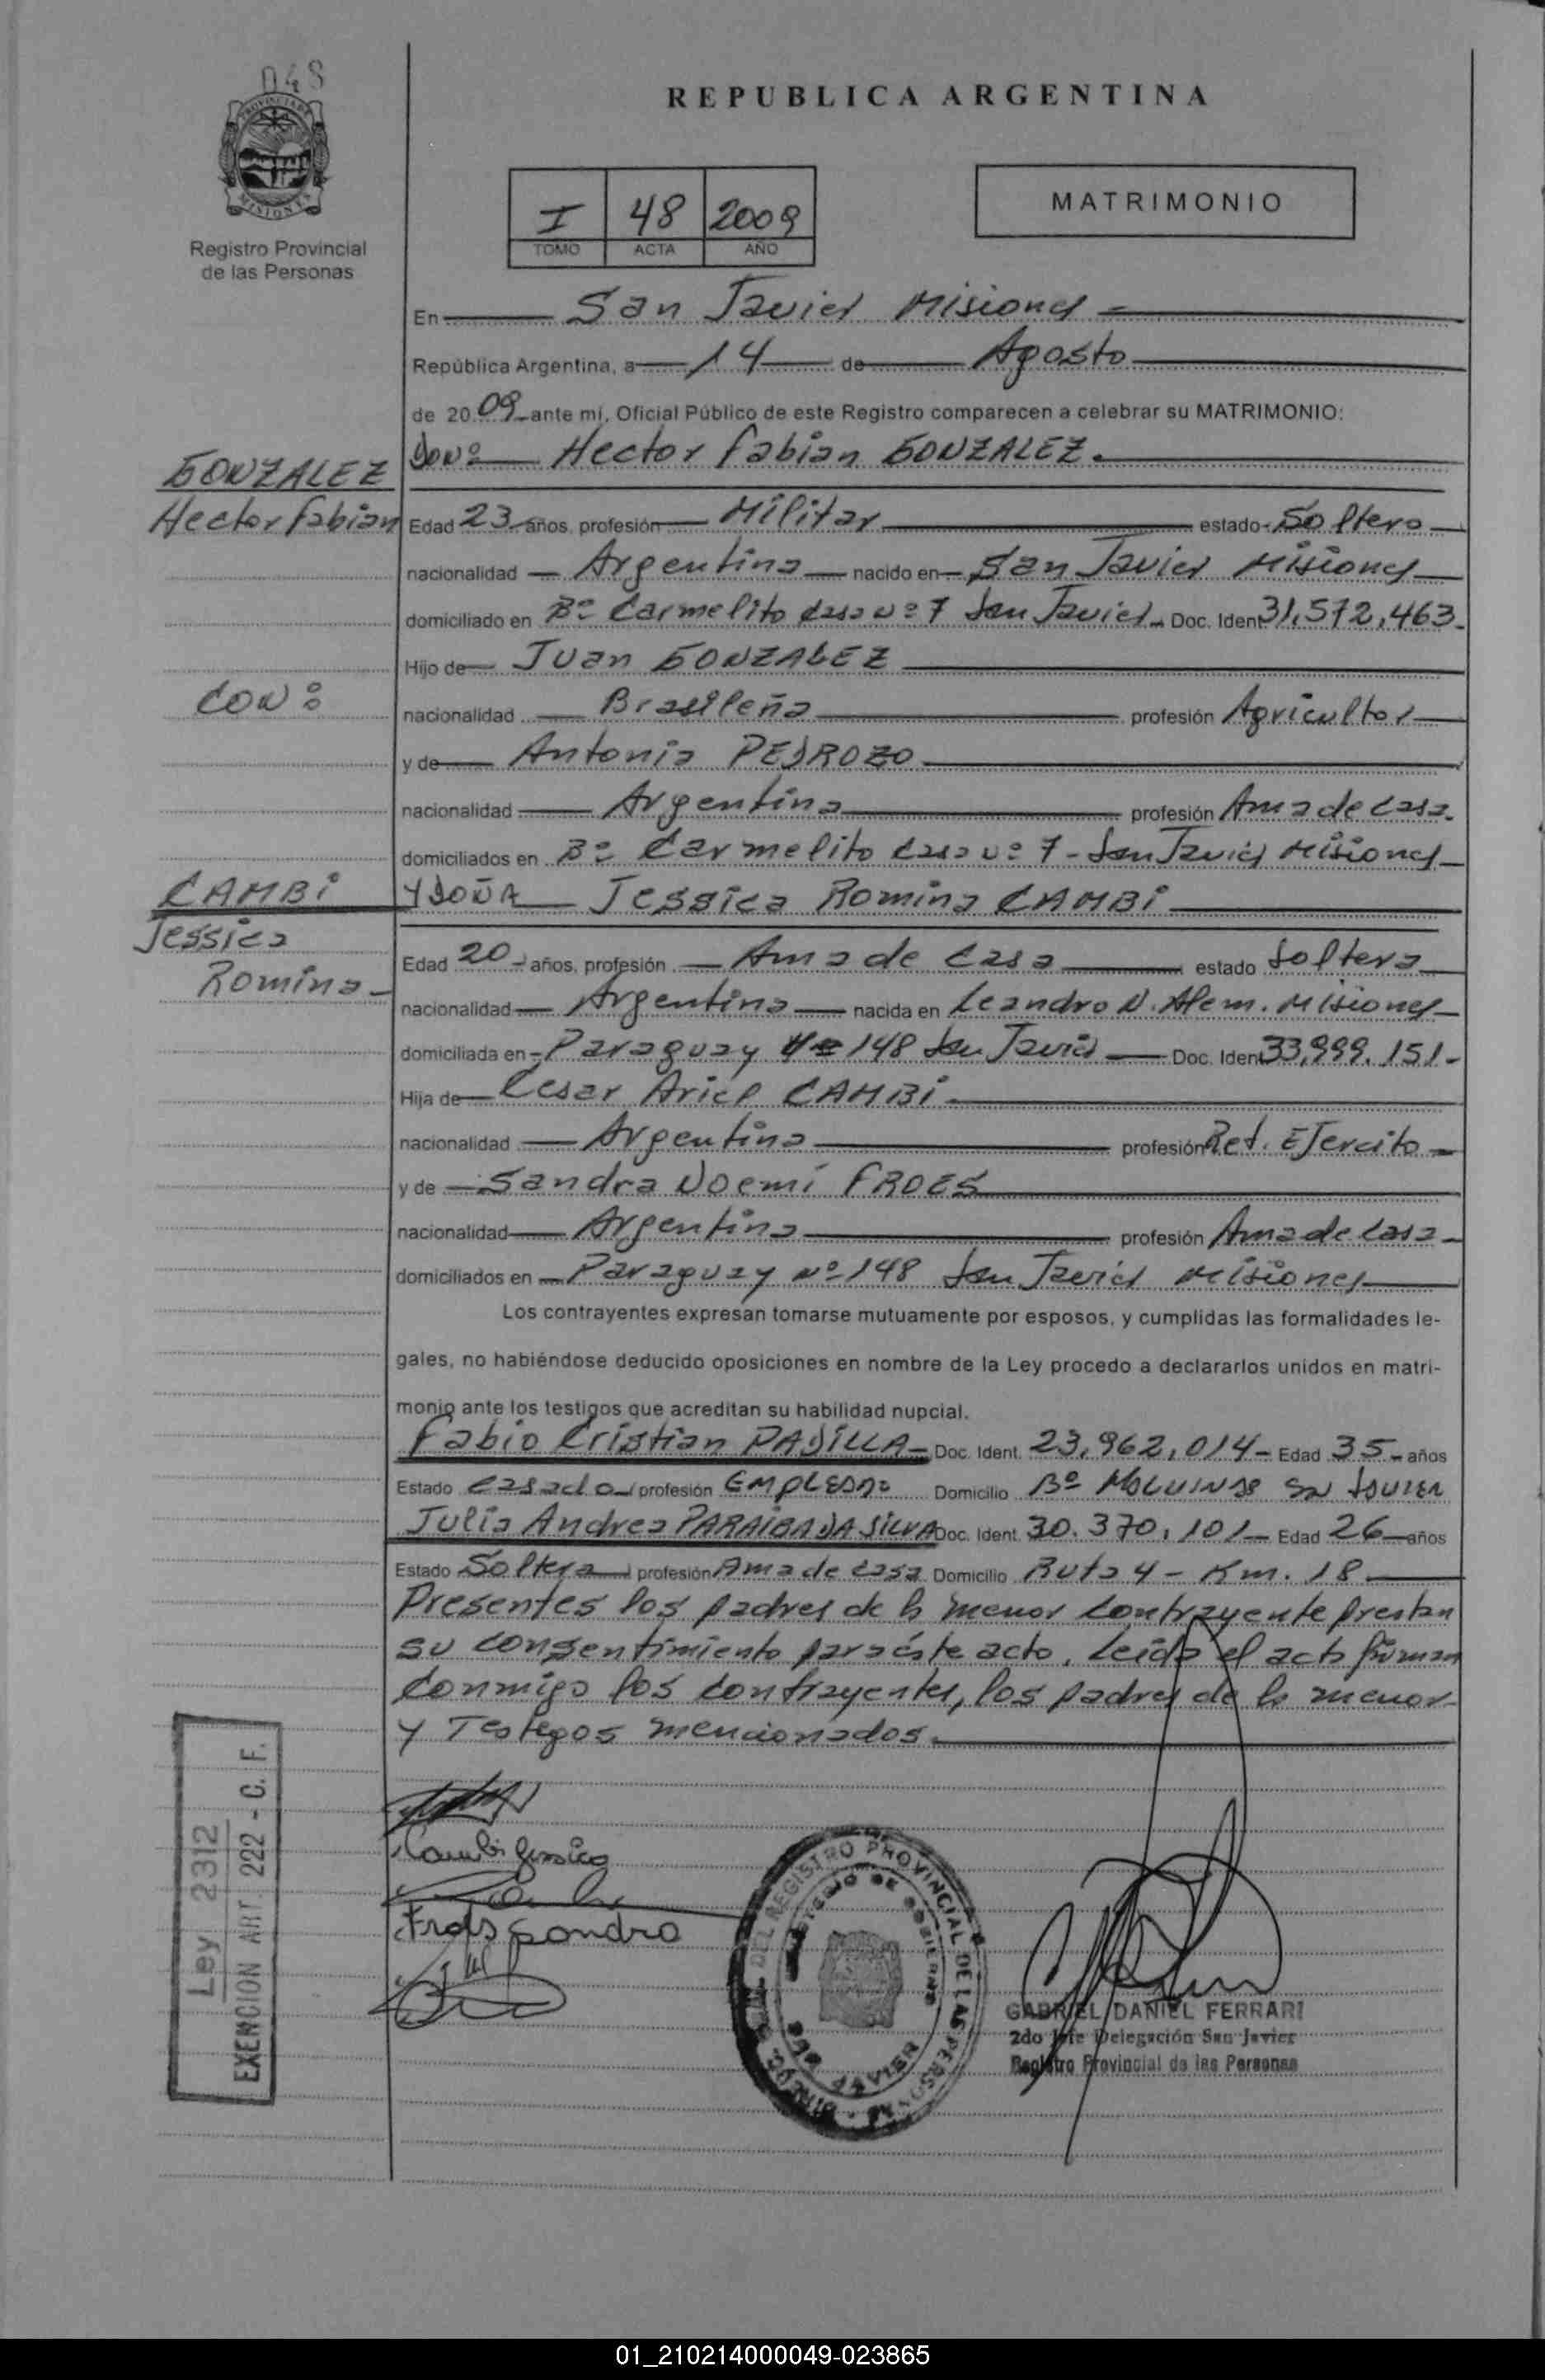 048
REPUBLICA ARGENTINA
PROVINCIA DE MISIONES
Registro Provincial
de las Personas
I 48 2009
TOMO ACTA AÑO
MATRIMONIO
En San Javier Misiones
República Argentina, a 14 de Agosto
de 2009 ante mí, Oficial Público de este Registro comparecen a celebrar su MATRIMONIO:
DON: Hector Fabian GONZALEZ.
GONZALEZ
Hector Fabian
Edad 23 años, profesión Militar estado Soltero
nacionalidad Argentina nacido en San Javier Misiones
domiciliado en Bº Carmelito casa Nº 7 San Javier Doc. Ident 31.572.463.
Hijo de Juan GONZALEZ
CON:
nacionalidad Brasileña profesión Agricultor
y de Antonia PEDROZO
nacionalidad Argentina profesión Ama de casa.
domiciliados en Bº Carmelito casa Nº 7 - San Javier Misiones
CAMBI
Y DOÑA Jessica Romina CAMBI
Jessica
Romina
Edad 20 años, profesión Ama de casa estado Soltera
nacionalidad Argentina nacida en Leandro N. Alem. Misiones
domiciliada en Paraguay 148 San Javier Doc. Ident 33.999.151-
Hija de Cesar Ariel CAMBI
nacionalidad Argentina profesión Ret. EJercito
y de Sandra Noemí FROES
nacionalidad Argentina profesión Ama de casa
domiciliados en Paraguay Nº 148 San Javier Misiones
Los contrayentes expresan tomarse mutuamente por esposos, y cumplidas las formalidades le-
gales, no habiéndose deducido oposiciones en nombre de la Ley procedo a declararlos unidos en matri-
monio ante los testigos que acreditan su habilidad nupcial.
Fabio Cristian PADILLA Doc. Ident. 23.962.014 Edad 35 años
Estado casado profesión EMPLEADO Domicilio Bº San Javier
Julia Andrea PARAIBA DA SILVA Doc. Ident. 30.370.101 Edad 26 años
Estado Soltera profesión Ama de casa Domicilio Ruta 4 - Km. 18
Presentes los padres de la menor contrayente prestan
su consentimiento para éste acto. Leída el acta firman
conmigo los contrayentes, los padres de la menor
y Testigos mencionados.
Cambi Jessica
Froes Sandra
Ley 2312
EXENCION ART. 222 - C. F.
DEL REGISTRO PROVINCIAL DE LAS PERSONAS
MINISTERIO DE GOBIERNO
SAN JAVIER
GABRIEL DANIEL FERRARI
2do Jefe Delegación San Javier
Registro Provincial de las Personas
01_210214000049-023865